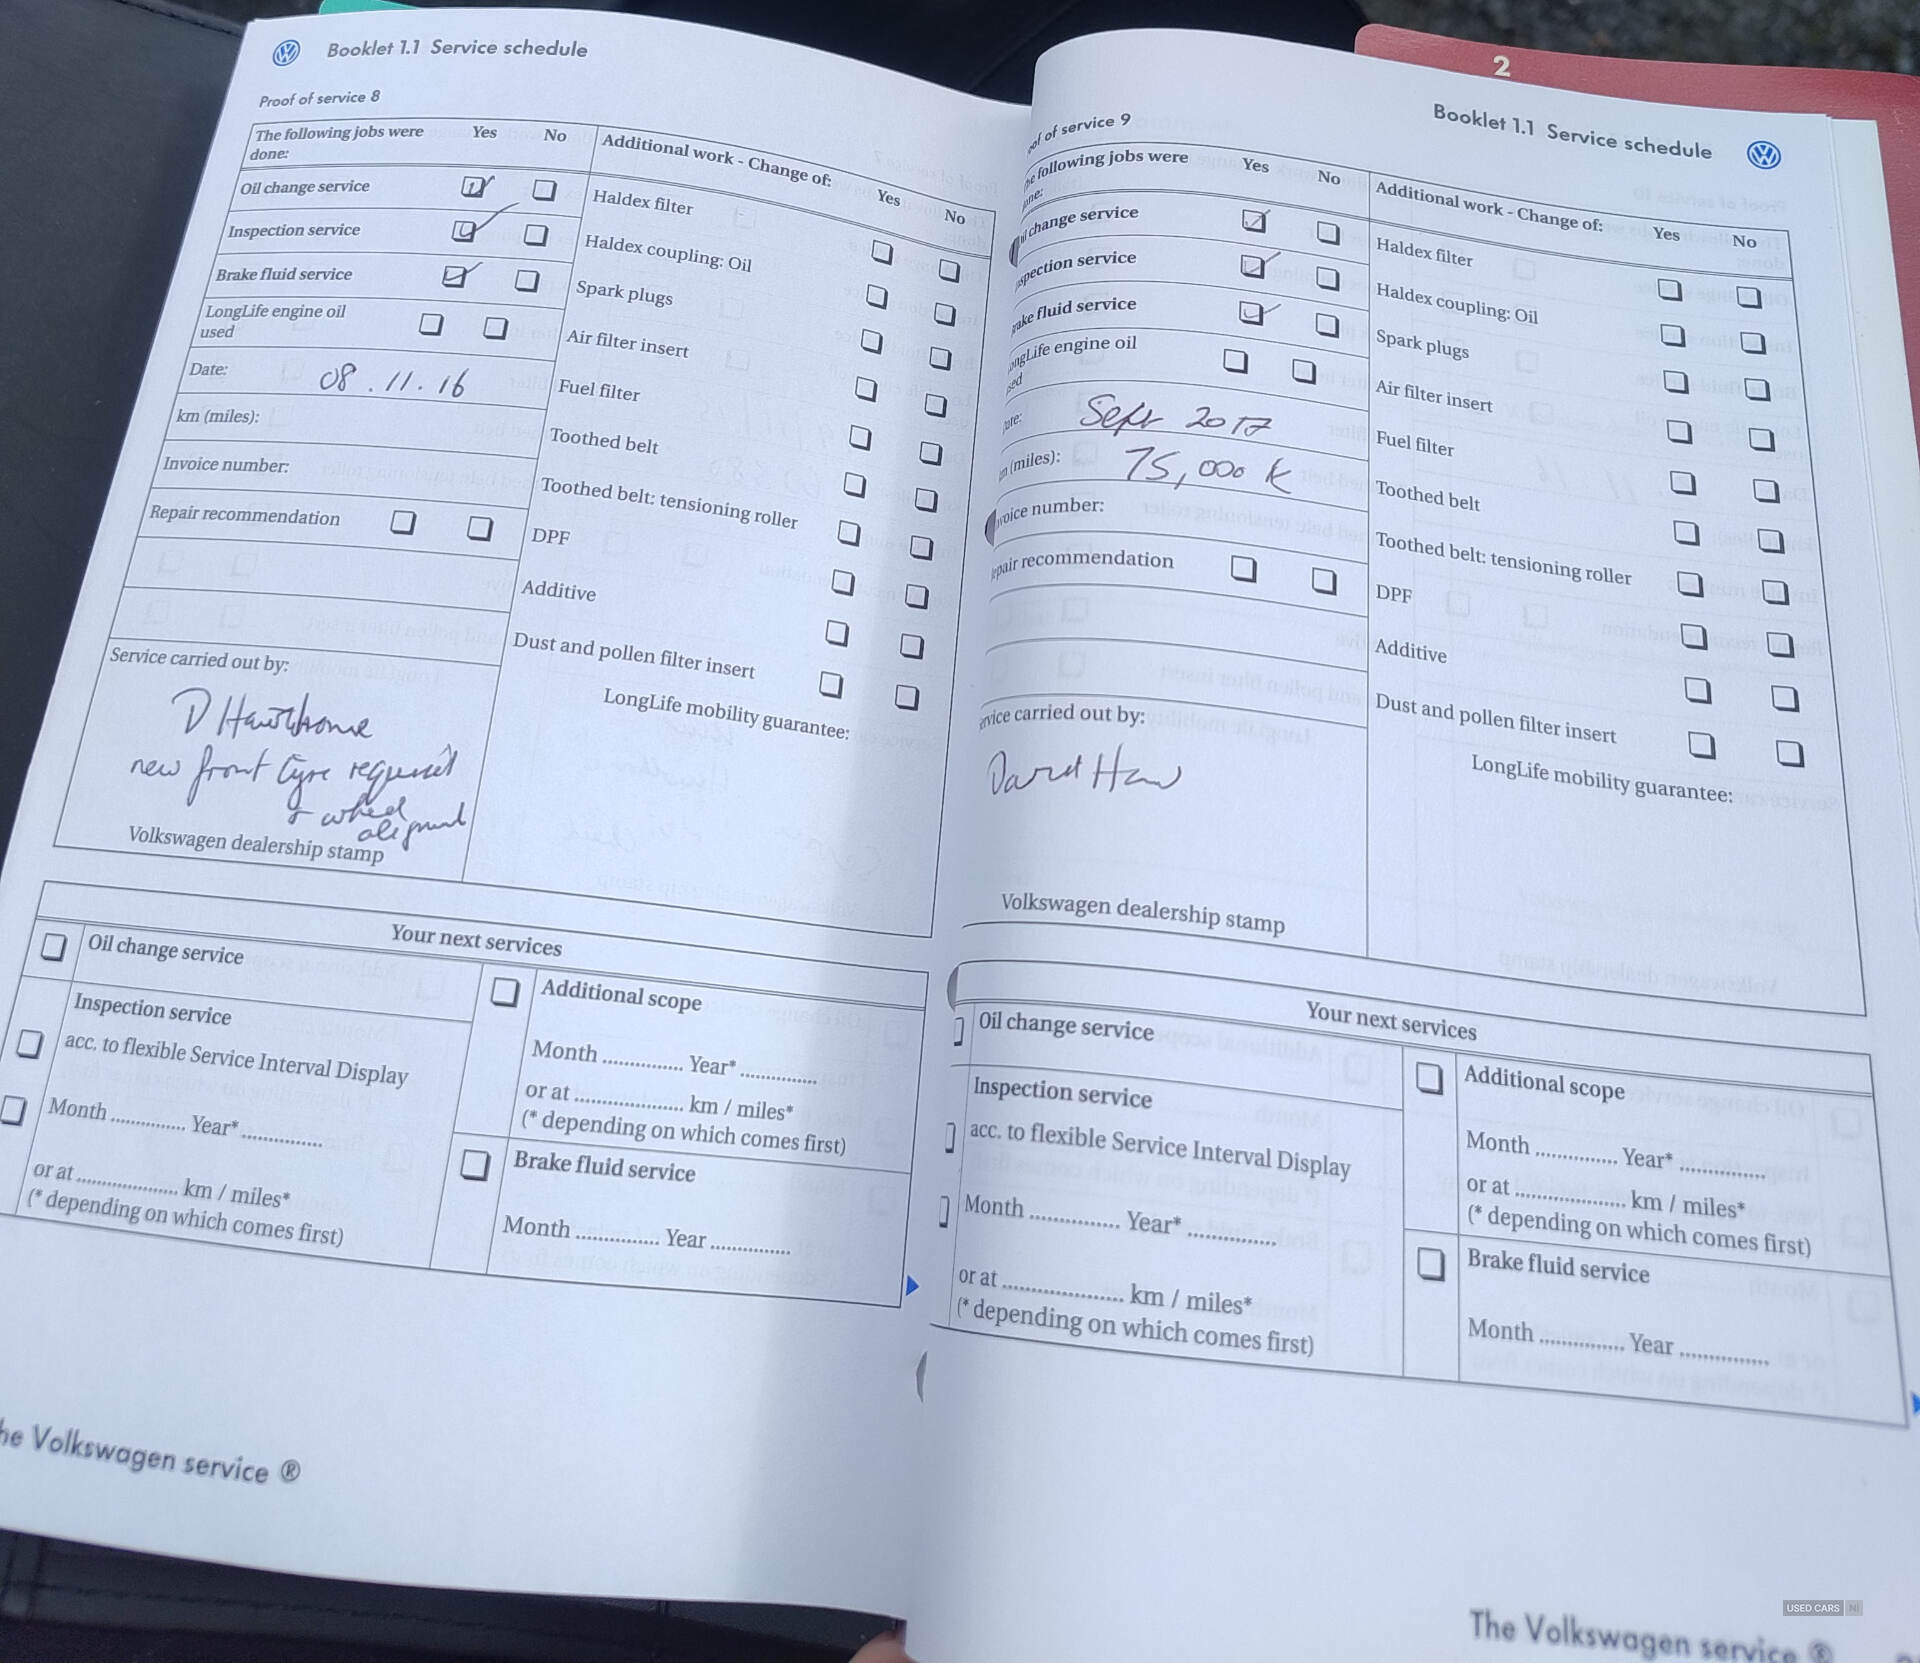 Booklet 1.1 Service schedule
Proof of service 8
The following jobs were done: Yes No
Oil change service
Inspection service
Brake fluid service
LongLife engine oil used
Date: 08.11.16
km (miles):
Invoice number:
Repair recommendation
Service carried out by:
D Hawthorne
new front tyre required
& wheel
alignment
Volkswagen dealership stamp
Additional work - Change of: Yes No
Haldex filter
Haldex coupling: Oil
Spark plugs
Air filter insert
Fuel filter
Toothed belt
Toothed belt: tensioning roller
DPF
Additive
Dust and pollen filter insert
LongLife mobility guarantee:
Your next services
Oil change service
Inspection service
acc. to flexible Service Interval Display
Month .............. Year* ...............
or at .................... km / miles*
(* depending on which comes first)
Additional scope
Month ............... Year* ..............
or at .................... km / miles*
(* depending on which comes first)
Brake fluid service
Month ............... Year ...............
he Volkswagen service ®
2
Booklet 1.1 Service schedule
of of service 9
he following jobs were
one: Yes No
il change service
spection service
ake fluid service
ongLife engine oil
sed
ate: Sept 2017
m (miles): 75,000 K
voice number:
epair recommendation
ervice carried out by:
David Haw
Volkswagen dealership stamp
Additional work - Change of: Yes No
Haldex filter
Haldex coupling: Oil
Spark plugs
Air filter insert
Fuel filter
Toothed belt
Toothed belt: tensioning roller
DPF
Additive
Dust and pollen filter insert
LongLife mobility guarantee:
Your next services
Oil change service
Inspection service
acc. to flexible Service Interval Display
Month ............... Year* ...............
or at .................... km / miles*
(* depending on which comes first)
Additional scope
Month ............... Year* ...............
or at .................... km / miles*
(* depending on which comes first)
Brake fluid service
Month ............... Year ...............
The Volkswagen service ®
USED CARS NI